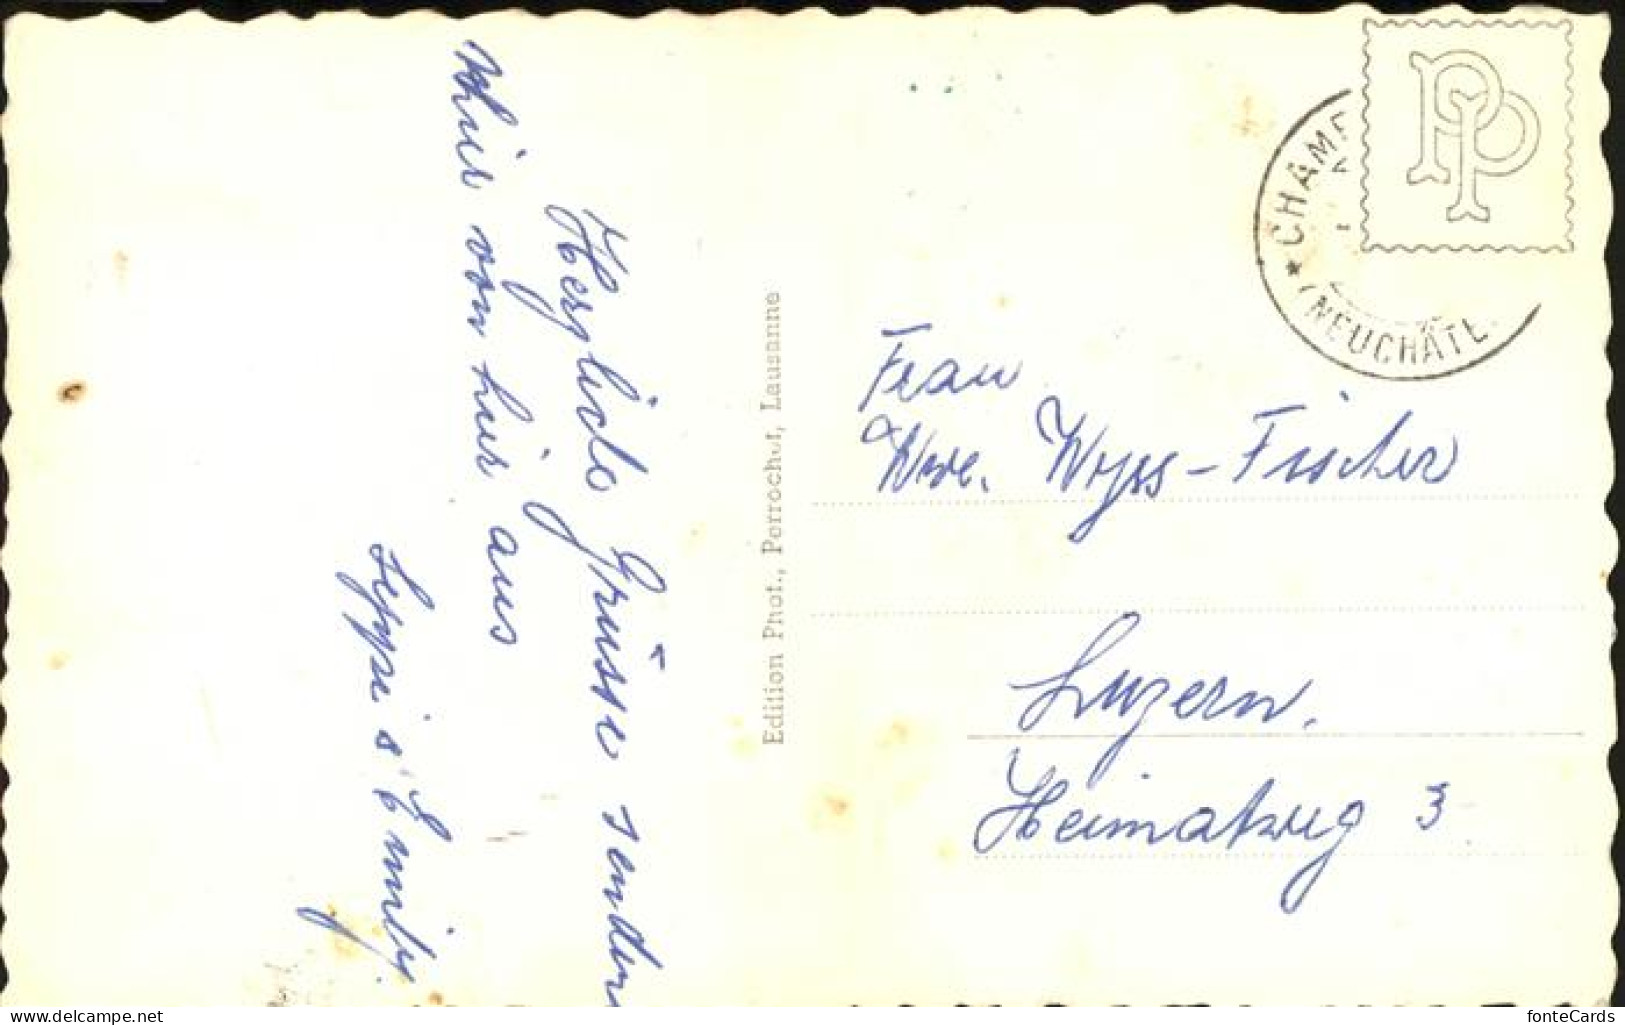 Herzliche Grüsse senden
von hier aus
Seppi s'Emily
Edition Phot., Perrochet, Lausanne
PP
* CHAMP
(NEUCHÂTEL
Frau
Wwe. Wyss-Fischer
Luzern.
Heimatweg 3
fonteCards